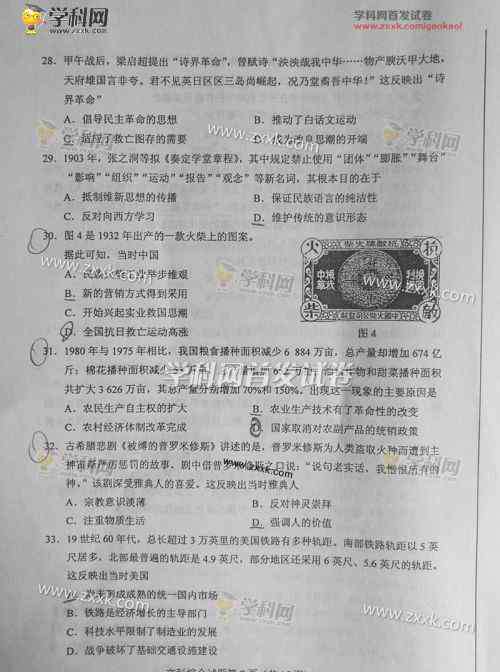 学科网
www.zxxk.com
学科网首发试卷
www.zxxk.com/gaokao/
28．甲午战后，梁启超提出“诗界革命”，曾赋诗“泱泱哉我中华……物产腴沃甲大地，
天府雄国言非夸。君不见英日区区三岛尚崛起，况乃堂矞吾中华！”这反映出“诗
界革命”
A．倡导民主革命的思想 B．推动了白话文运动
C．适应了救亡图存的需要 D．成为改良思潮的开端
29．1903 年，张之洞等拟《奏定学堂章程》，其中规定禁止使用“团体”“膨胀”“舞台”
“影响”“组织”“运动”“报告”“观念”等新名词，其根本目的在于
A．抵制维新思想的传播 B．保证民族语言的纯洁性
C．反对向西方学习 D．维护传统的意识形态
30．图 4 是 1932 年出产的一款火柴上的图案。
据此可知，当时中国
A．民族火柴工业举步维艰
B．新的营销方式得到采用
C．开始兴起实业救国思潮
D．全国抗日救亡运动高涨
图 4
31．1980 年与 1975 年相比，我国粮食播种面积减少 6 884 万亩，总产量却增加 674 亿
斤；棉花播种面积减少
物和甜菜播种面积
共扩大 3 626 万亩，其总产量分别增加 70%和 150%。出现这一现象的主要原因是
A．农民生产自主权的扩大 B．农业生产技术有了革命性的改变
C．农村经济体制改革完成 D．国家取消对农副产品的统销政策
32．古希腊悲剧《被缚的普罗米修斯》讲述的是，普罗米修斯为人类盗取火种而遭到主
神宙斯严厉惩罚的故事，剧中借普罗米修斯之口说：“说句老实话，我憎恨所有的
神。”该剧深受雅典人的喜爱。这反映出当时雅典人
A．宗教意识淡薄 B．反对神灵崇拜
C．注重物质生活 D．强调人的价值
33．19 世纪 60 年代，总长超过 3 万英里的美国铁路有多种轨距。南部铁路轨距以 5 英
尺居多，北部最普遍的轨距是 4.9 英尺，部分地区还采用 6 英尺、5.6 英尺的轨距。
这反映出当时美国
A．尚未形成成熟的统一国内市场
B．铁路是经济增长的主导部门
C．科技水平限制了制造业的发展
D．战争破坏了基础交通设施建设